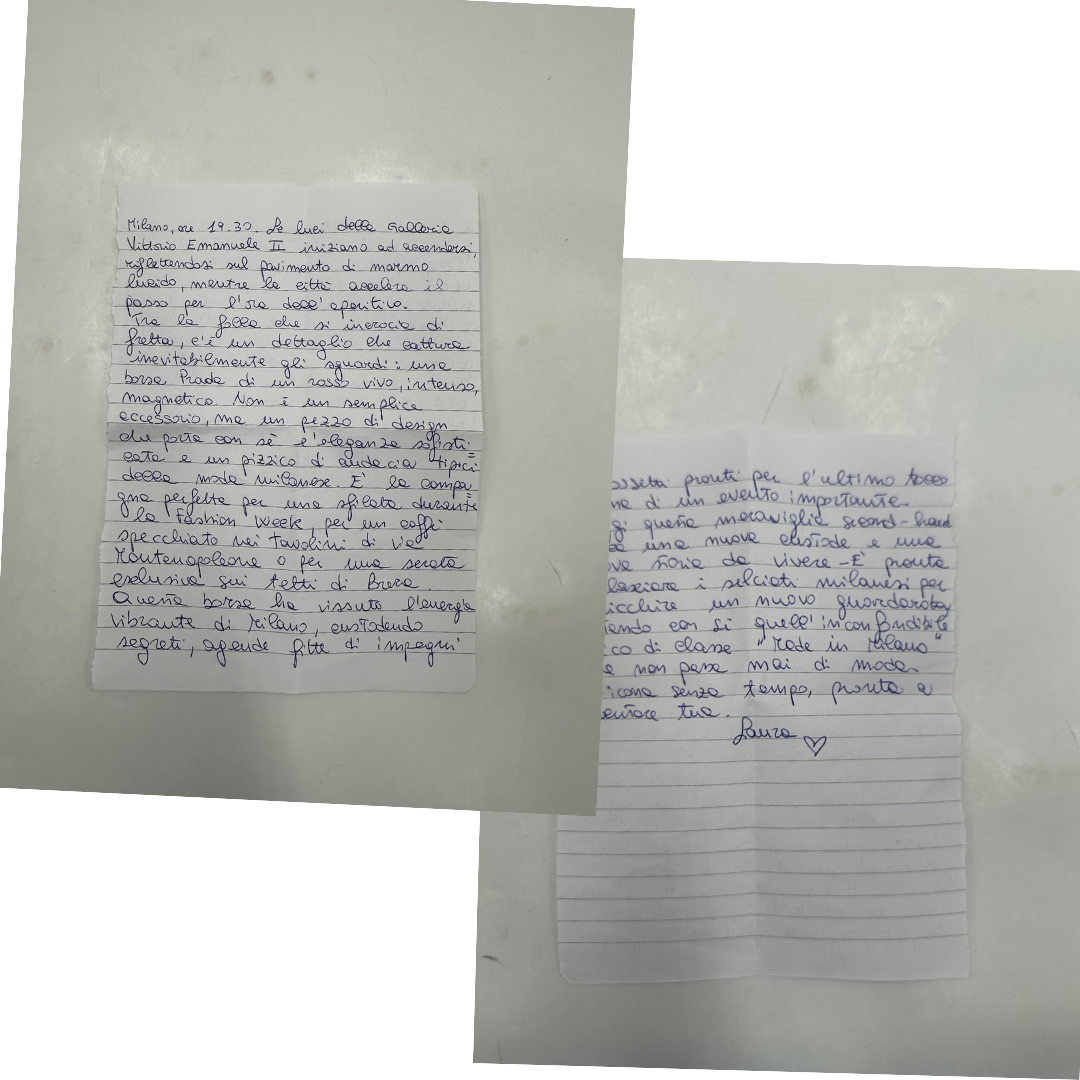 Milano, ore 19.30. Le luci della Galleria
Vittorio Emanuele II iniziano ad accendersi,
riflettendosi sul pavimento di marmo
lucido, mentre la città accelera il
passo per l'ora dell'aperitivo.
Tra la folla che si incrocia di
fretta, c'è un dettaglio che cattura
inevitabilmente gli sguardi: una
borsa Prada di un rosso vivo, intenso,
magnetico. Non è un semplice
accessorio, ma un pezzo di design
che porta con sé l'eleganza sofisti=
cata e un pizzico di audacia tipici
della moda milanese. È la compa=
gna perfetta per una sfilata durante
la Fashion Week, per un caffè
specchiato nei tavolini di via
Montenapoleone o per una serata
esclusiva sui tetti di Brera.
Questa borsa ha vissuto l'energia
vibrante di Milano, custodendo
segreti, agende fitte di impegni
ossetti pronti per l'ultimo tocco
di un evento importante.
questa meraviglia second-hand
una nuova custode e una
storia da vivere - È pronta
lasciare i selciati milanesi per
icchire un nuovo guardaroba,
endo con sé quell'inconfondibile
co di classe "Made in Milano"
e non passa mai di moda.
icona senza tempo, pronta a
entare tua.
Laura ♡